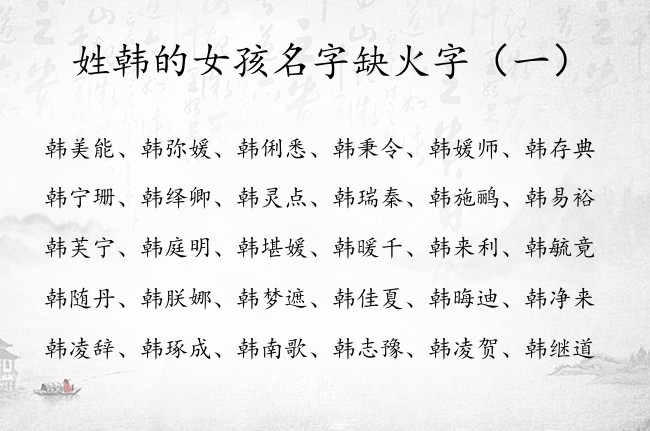 姓韩的女孩名字缺火字（一）
韩美能、韩弥媛、韩俐悉、韩秉令、韩媛师、韩存典
韩宁珊、韩绎卿、韩灵点、韩瑞秦、韩施鹂、韩易裕
韩芙宁、韩庭明、韩堪媛、韩暖千、韩来利、韩毓竟
韩随丹、韩朕娜、韩梦遮、韩佳夏、韩晦迪、韩净来
韩凌辞、韩琢成、韩南歌、韩志豫、韩凌贺、韩继道